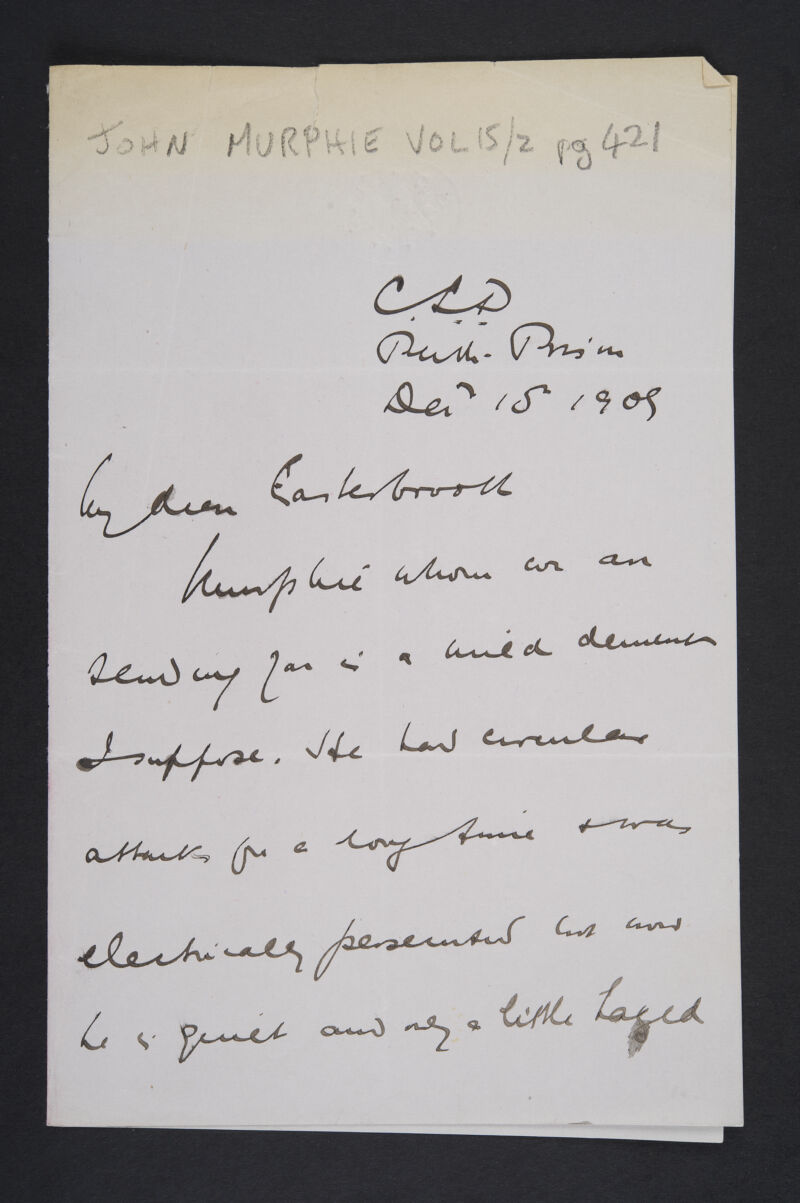 JOHN MURPHIE VOL 15/2 pg 421
C.L.D
Perth Prison
Decr 15 1909
My dear Easterbrook
Murphie whom we are
sending you is a mild dement
I suppose. He had circular
attacks for a long time & was
electrically persecuted but now
he is quiet and only a little